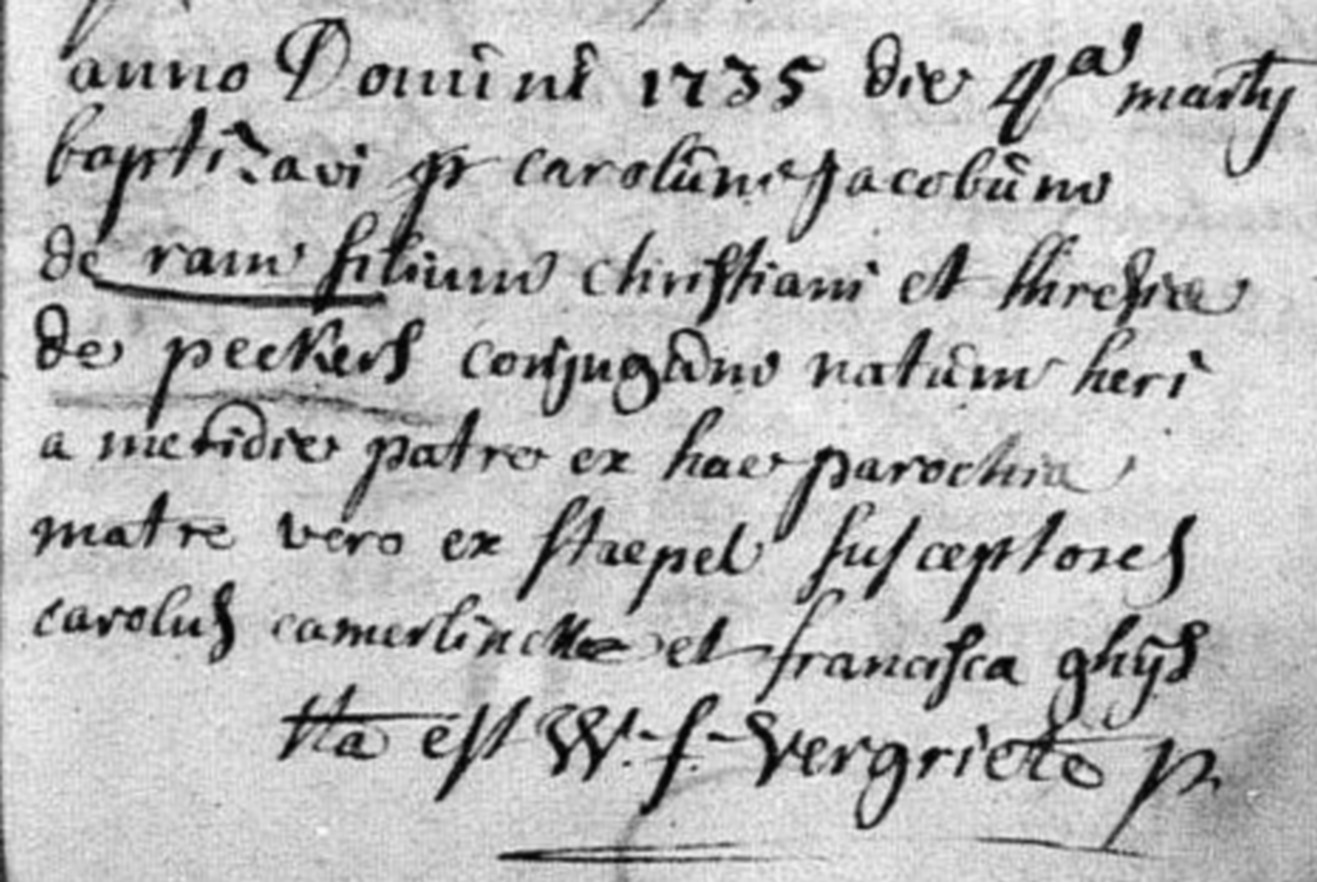 anno Domini 1735 die 4a martij
baptizavi carolum Jacobum
de ram filium christiani et thresiæ
de peckers conjugum natum heri
a meridie patre ex hac parochia
matre vero ex staepel susceptores
carolus camerlinck et francisca ghijs
Ita est W. f. Vergriete p.